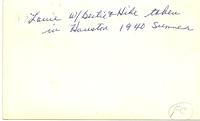 Louie W/Bertie & Hike taken
in Houston 1940 Summer